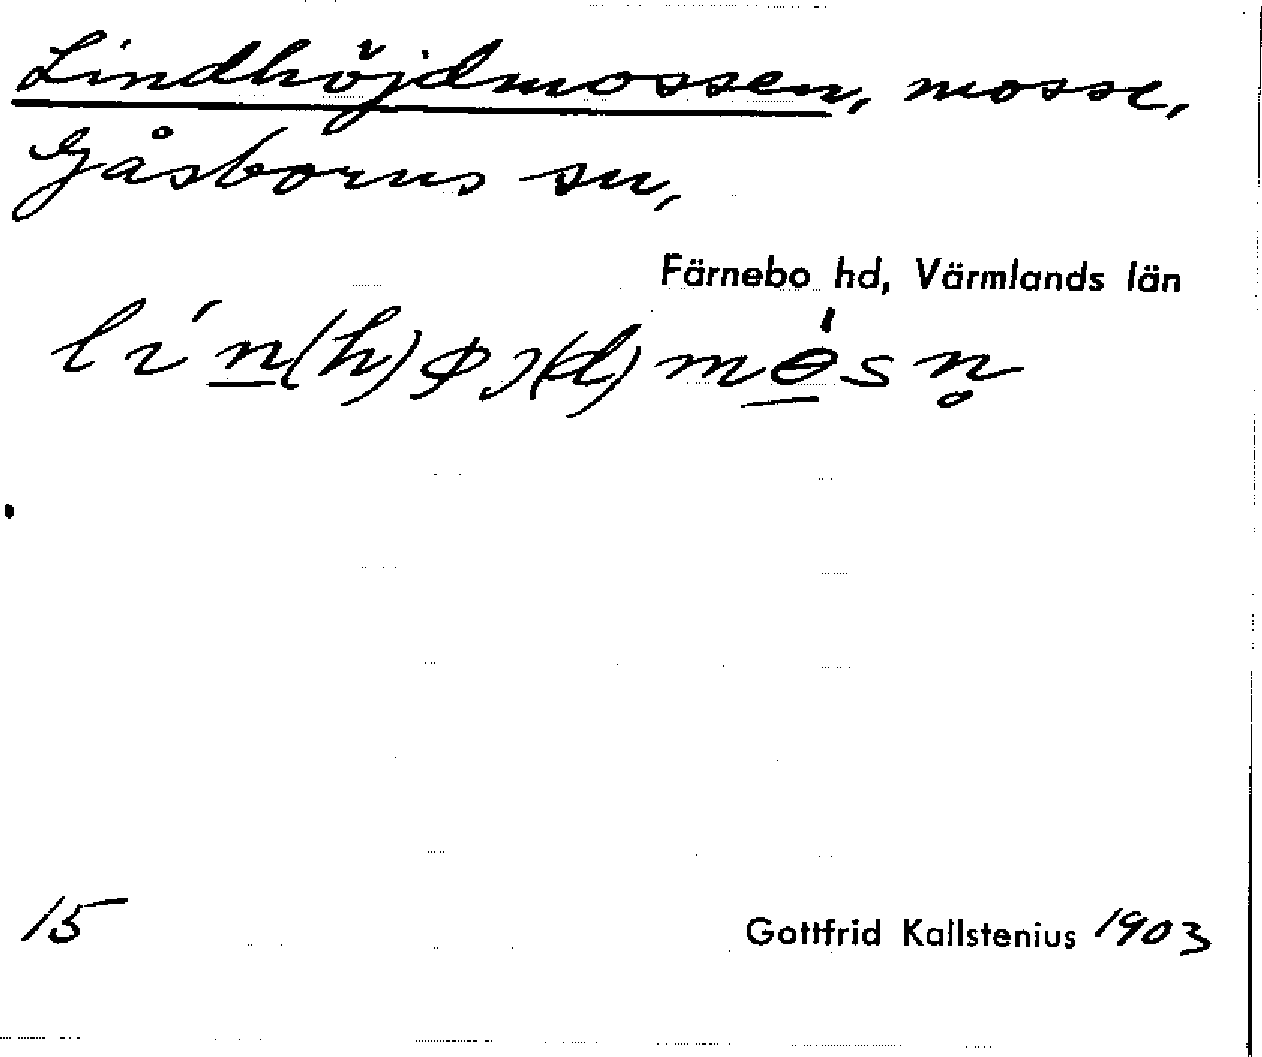 Lindhöjdmossen, mosse,
Gåsborns sn,
Färnebo hd, Värmlands län
lín(h)øj(d)mòsn̥
15
Gottfrid Kallstenius 1903